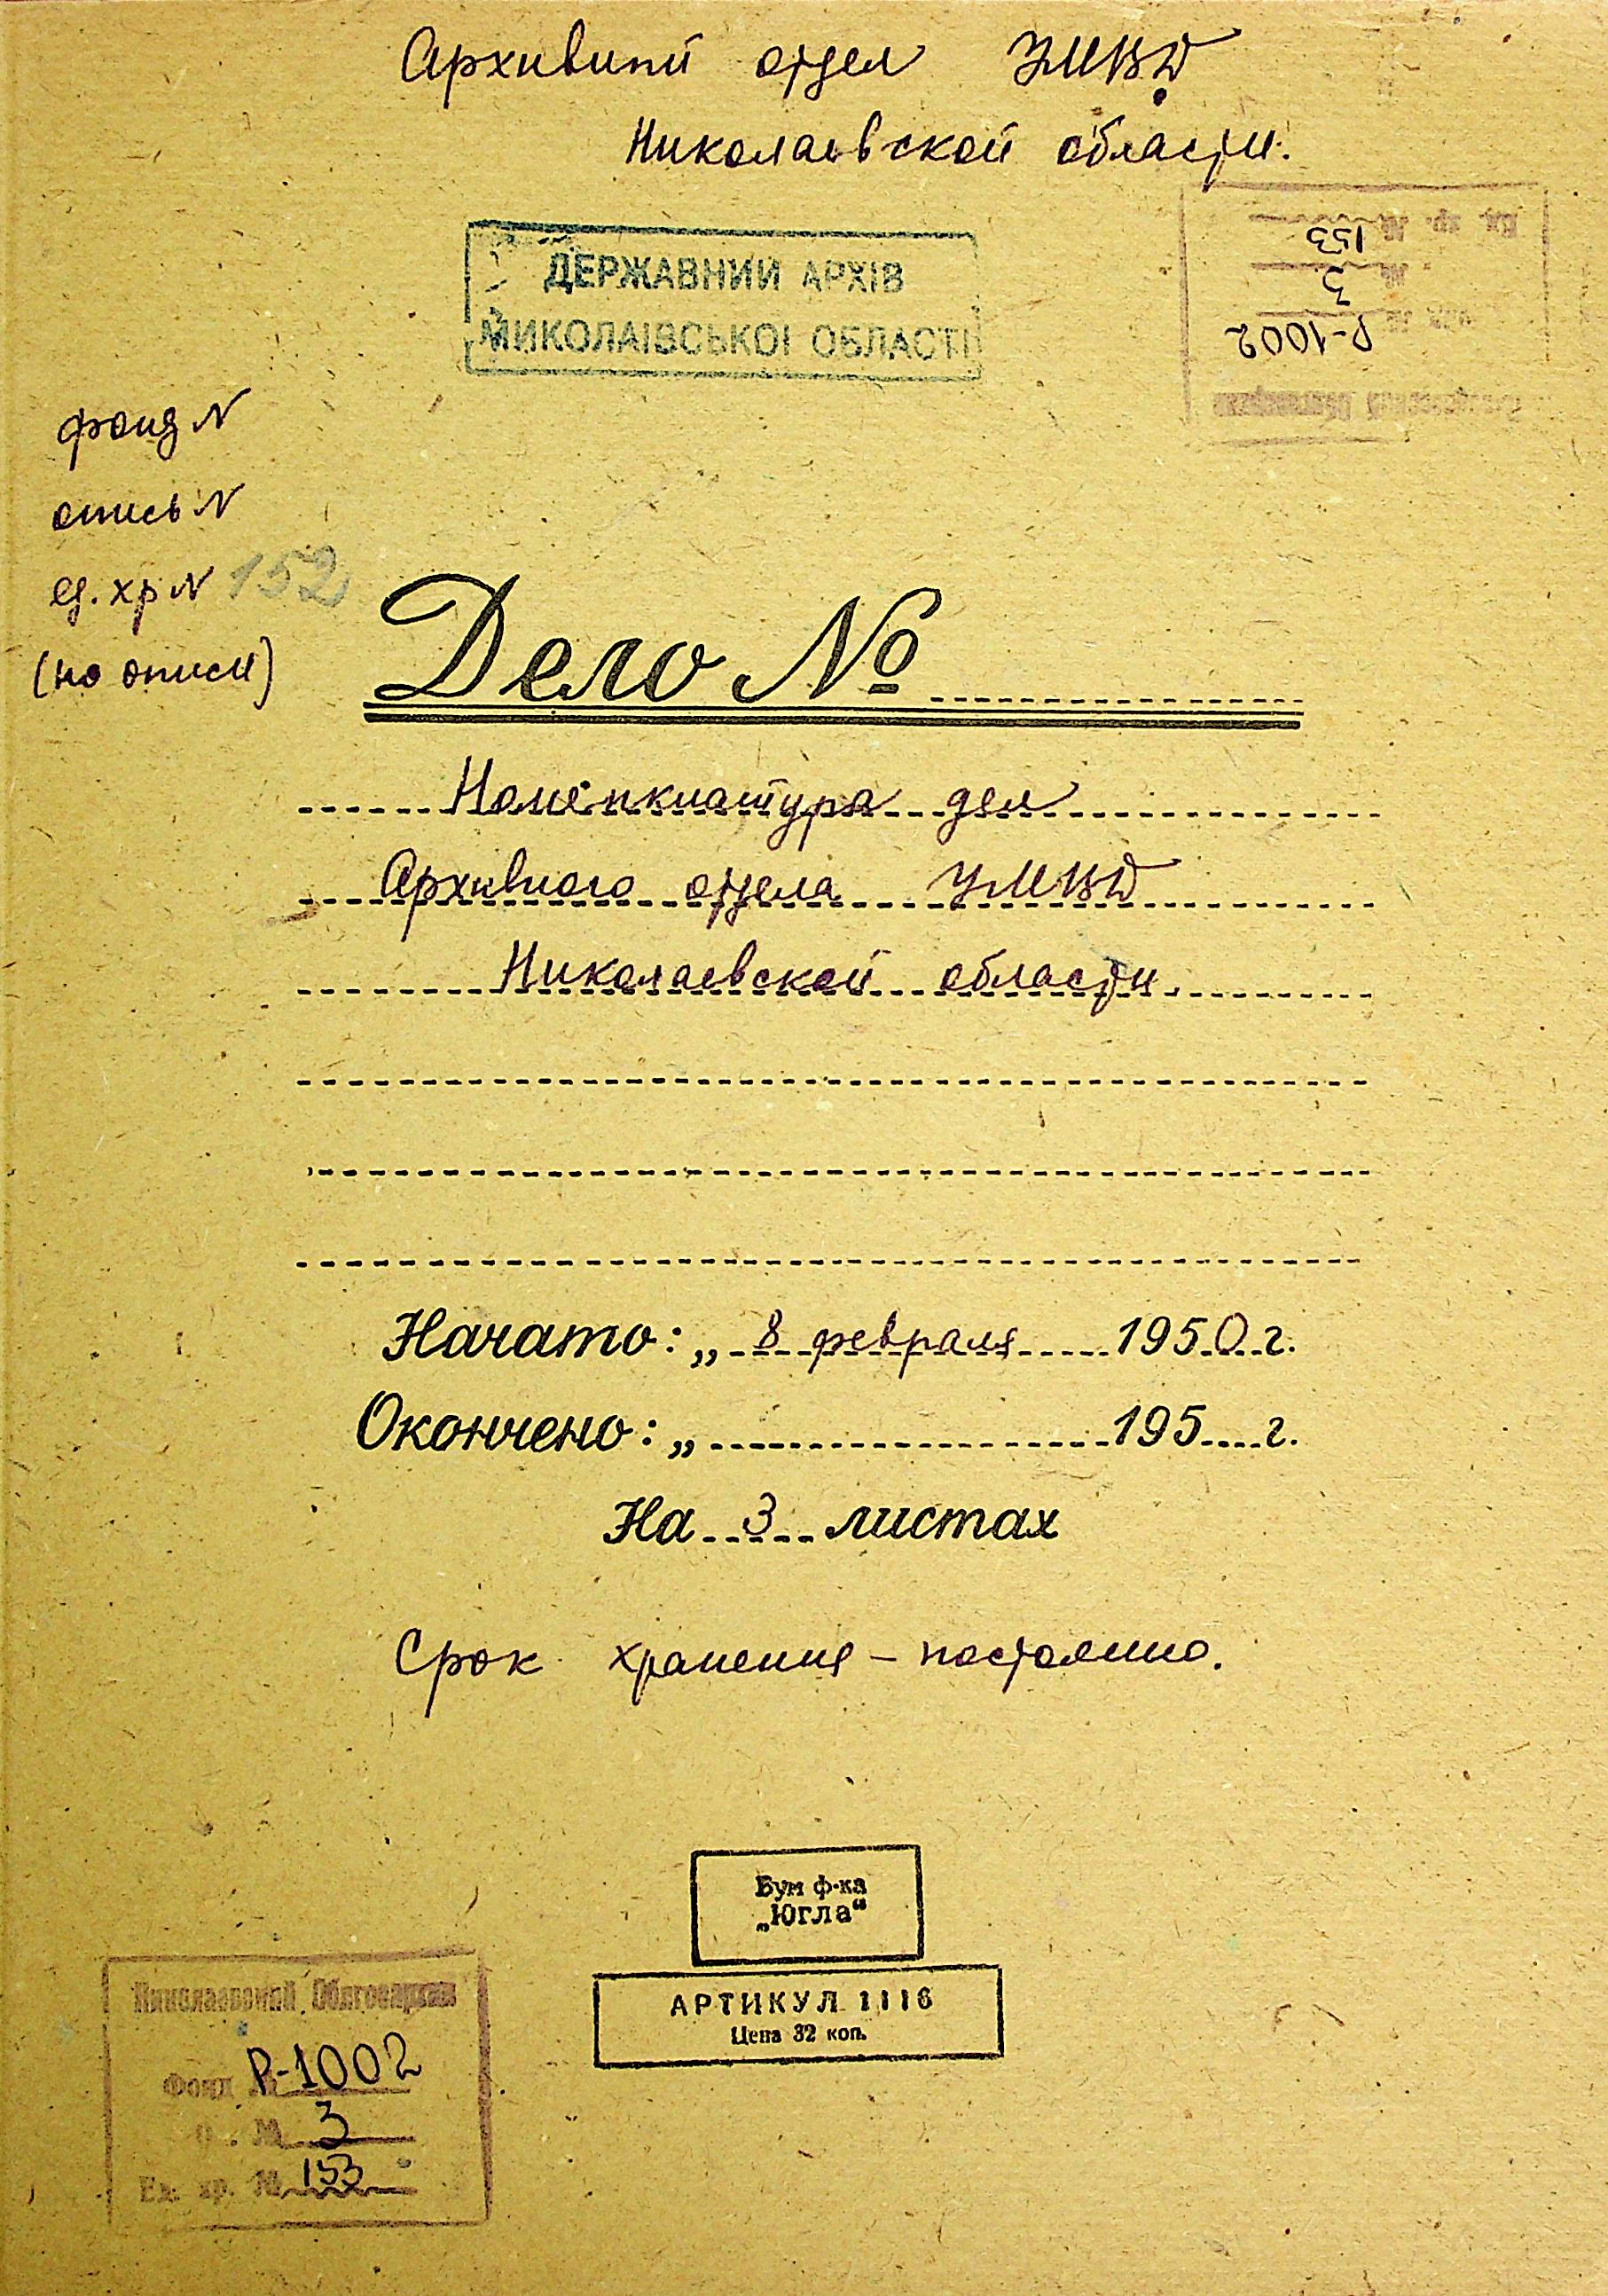 Архивный отдел УМВД
Николаевской области.
ДЕРЖАВНИЙ АРХІВ
МИКОЛАЇВСЬКОЇ ОБЛАСТІ
Ед. хр. № 153
№ 3
Р-1002
фонд N
опись N
ед. хр N 152
(по описи)
Дело №
Номенклатура дел
Архивного отдела УМВД
Николаевской области.
Начато: „ 8 февраля 1950 г.
Окончено: „ 195 г.
На 3 листах
Срок хранения – постоянно.
Бум ф-ка
„Югла“
АРТИКУЛ 1116
Цена 32 коп.
Николаевский Облгосархив
Фонд Р-1002
№ 3
Ед. хр. № 153